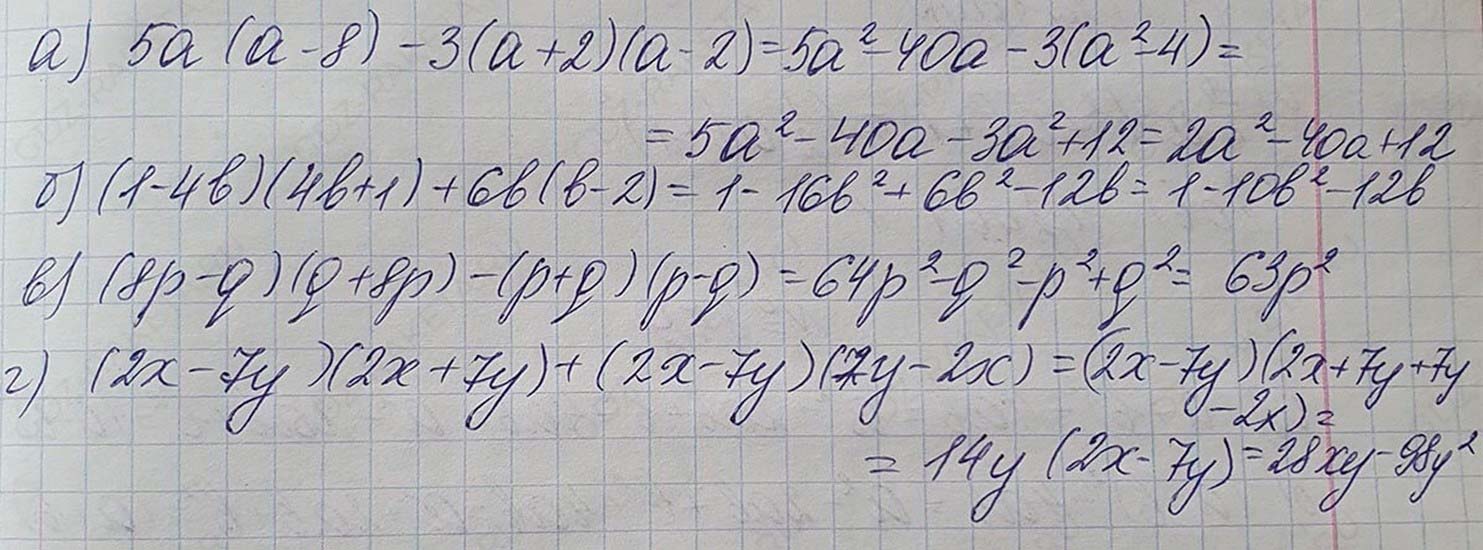 а) 5a (a - 8) - 3(a + 2)(a - 2) = 5a² - 40a - 3(a² - 4) =
= 5a² - 40a - 3a² + 12 = 2a² - 40a + 12
б) (1 - 4b)(4b + 1) + 6b(b - 2) = 1 - 16b² + 6b² - 12b = 1 - 10b² - 12b
в) (8p - q)(q + 8p) - (p + q)(p - q) = 64p² - q² - p² + q² = 63p²
г) (2x - 7y)(2x + 7y) + (2x - 7y)(7y - 2x) = (2x - 7y)(2x + 7y + 7y
- 2x) =
= 14y (2x - 7y) = 28xy - 98y²